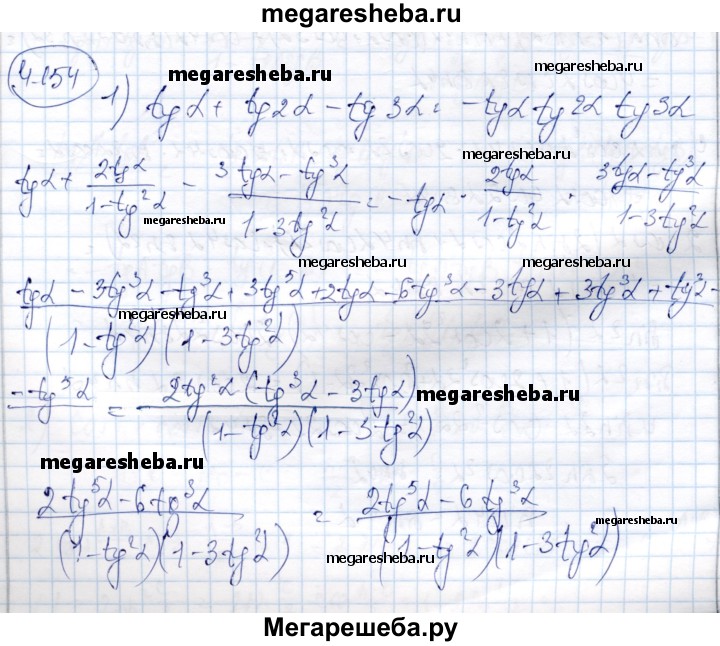 megaresheba.ru
4.154
megaresheba.ru
megaresheba.ru
1) tgα + tg2α - tg3α = -tgα tg2α tg3α
tgα + 2tgα/(1-tg²α) - (3tgα - tg³α)/(1-3tg²α) = -tgα · 2tgα/(1-tg²α) · (3tgα - tg³α)/(1-3tg²α)
megaresheba.ru
megaresheba.ru
megaresheba.ru
(tgα - 3tg³α - tg³α + 3tg⁵α + 2tgα - 6tg³α - 3tgα + 3tg³α + tg³ -
(1-tg²α)(1-3tg²α)
-tg⁵α = 2tg²α(tg³α - 3tgα)/((1-tg²α)(1-3tg²α))
megaresheba.ru
megaresheba.ru
(2tg⁵α - 6tg³α)/((1-tg²α)(1-3tg²α)) = (2tg⁵α - 6tg³α)/((1-tg²α)(1-3tg²α))
megaresheba.ru
megaresheba.ru
megaresheba.ru
Мегарешеба.ру